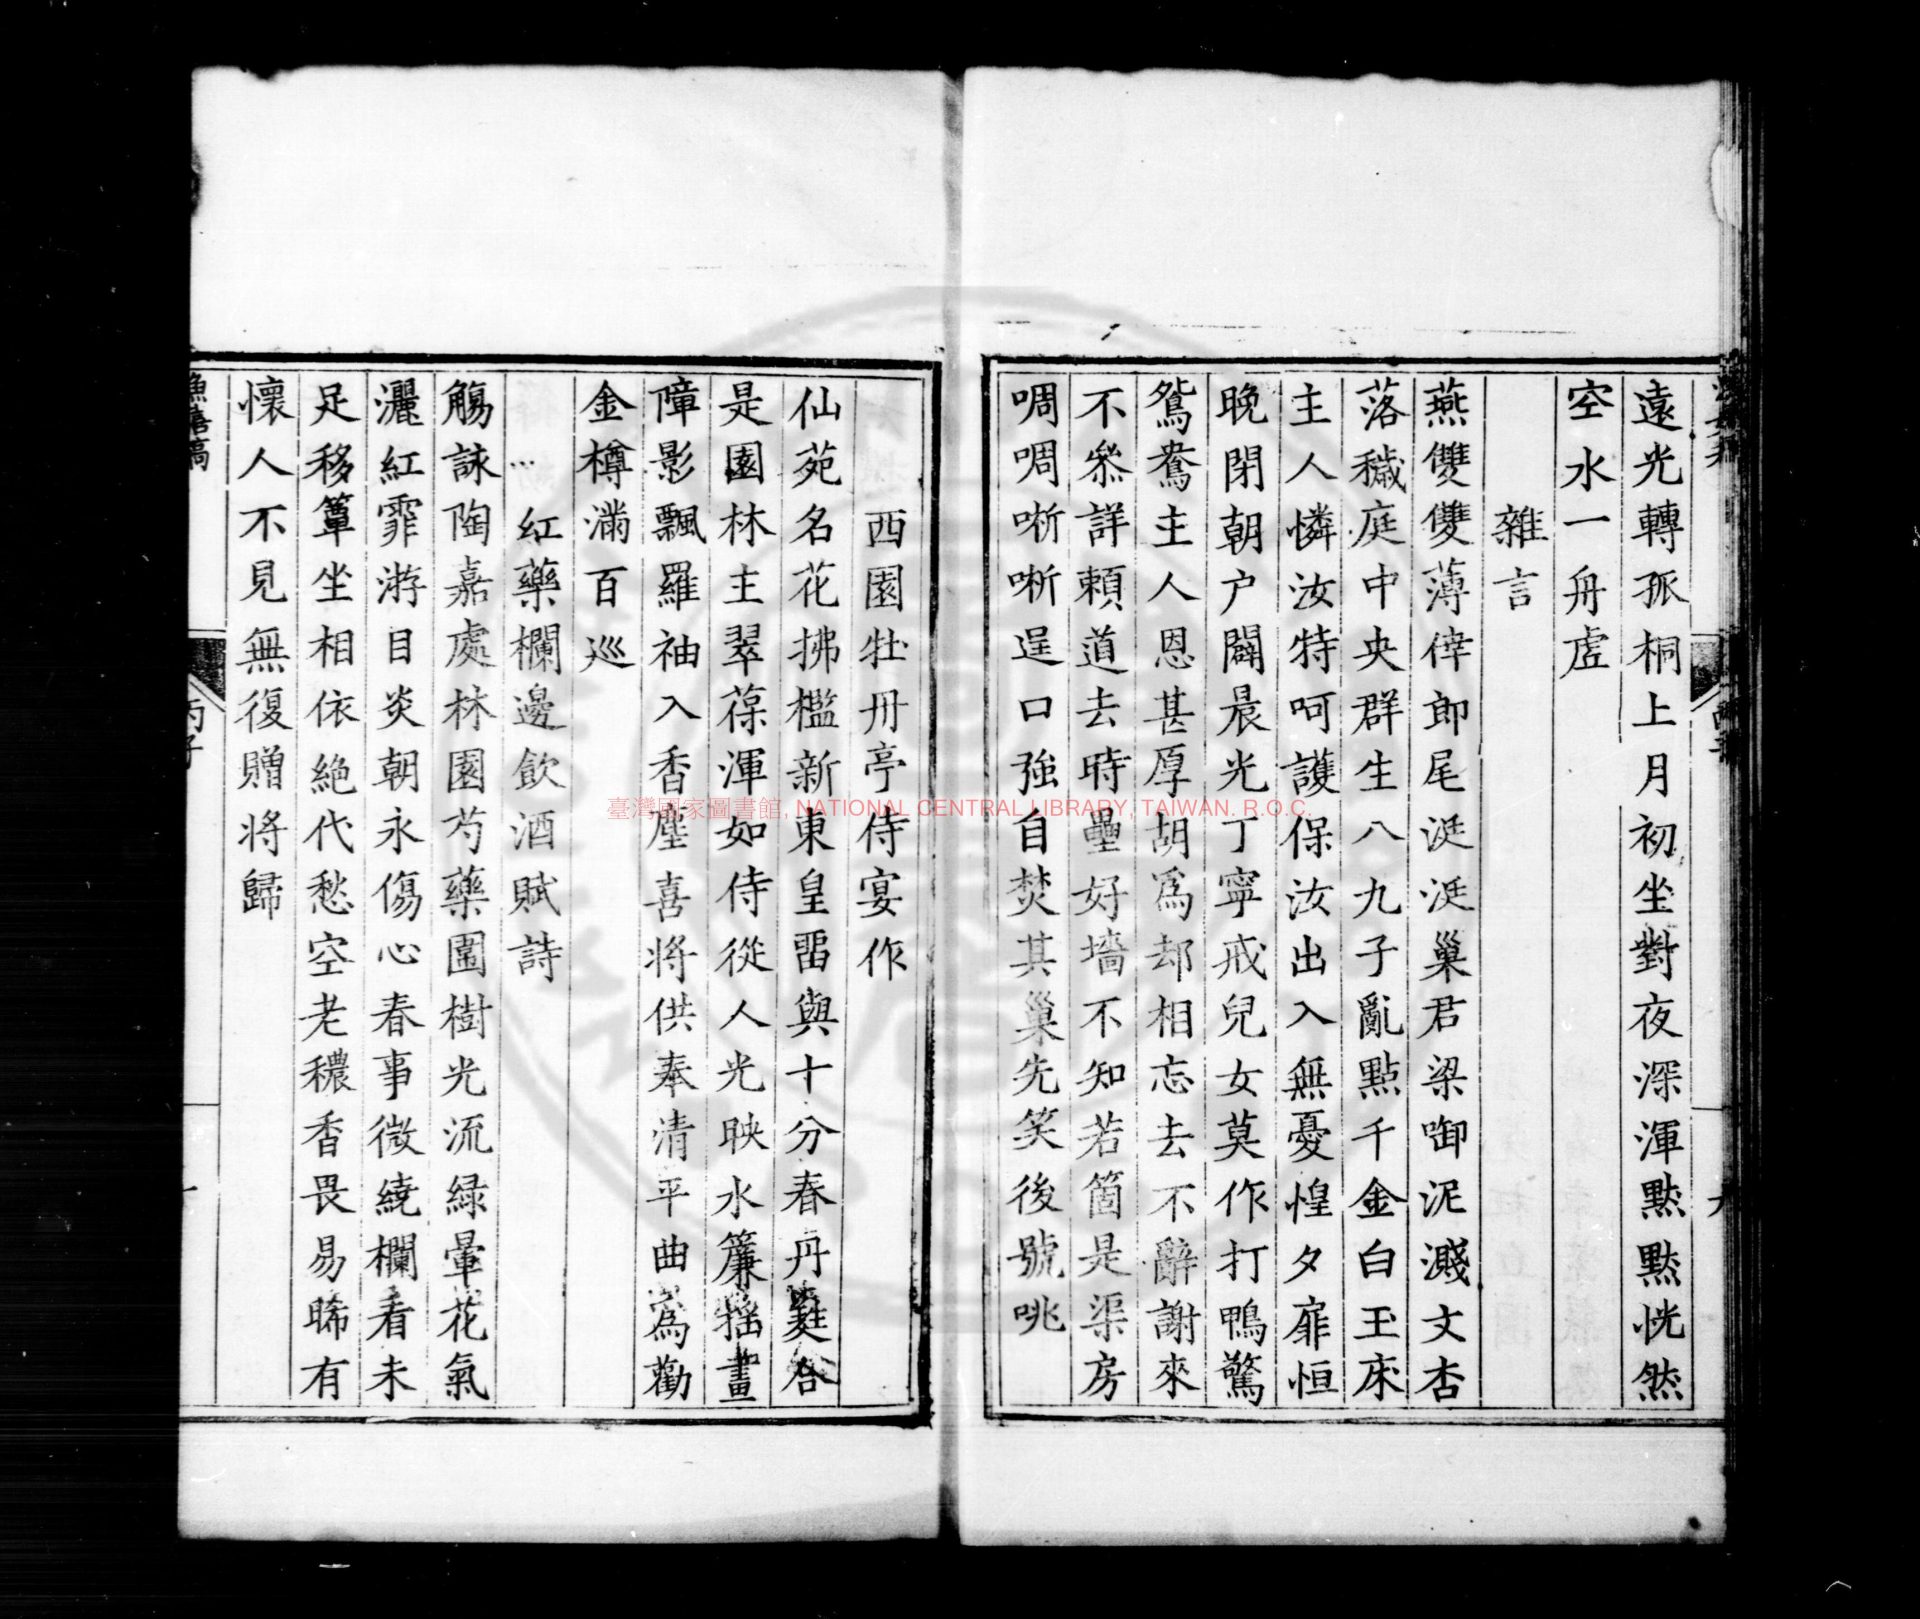 遠光轉孤桐上月初坐對夜深渾黙黙恍然
空水一舟虛
雜言
燕雙雙薄倖郎尾涎涎巢君梁啣泥濺文杏
落穢庭中央群生八九子亂點千金白玉床
主人憐汝特呵護保汝出入無憂惶夕扉恒
晚閉朝户闢晨光丁寧戒兒女莫作打鴨驚
鴛鴦主人恩甚厚胡爲却相忘去不辭謝來
不叅詳頼道去時壘好墻不知若箇是渠房
啁啁哳哳逞口強自焚其巢先笑後號咷
西園牡丹亭侍宴作
仙苑名花拂檻新東皇畱與十分春丹
是園林主翠葆渾如侍從人光映水簾摇畫
障影飄羅袖入香塵喜將供奉清平曲為勸
金樽滿百巡
紅藥欄邊飲酒賦詩
觴詠陶嘉處林園芍藥圍樹光流緑暈花氣
灑紅霏游目炎朝永傷心春事微繞欄看未
足移簟坐相依絶代愁空老穠香畏易晞有
懷人不見無復贈将歸
臺灣國家圖書館, NATIONAL CENTRAL LIBRARY, TAIWAN. R.O.C.